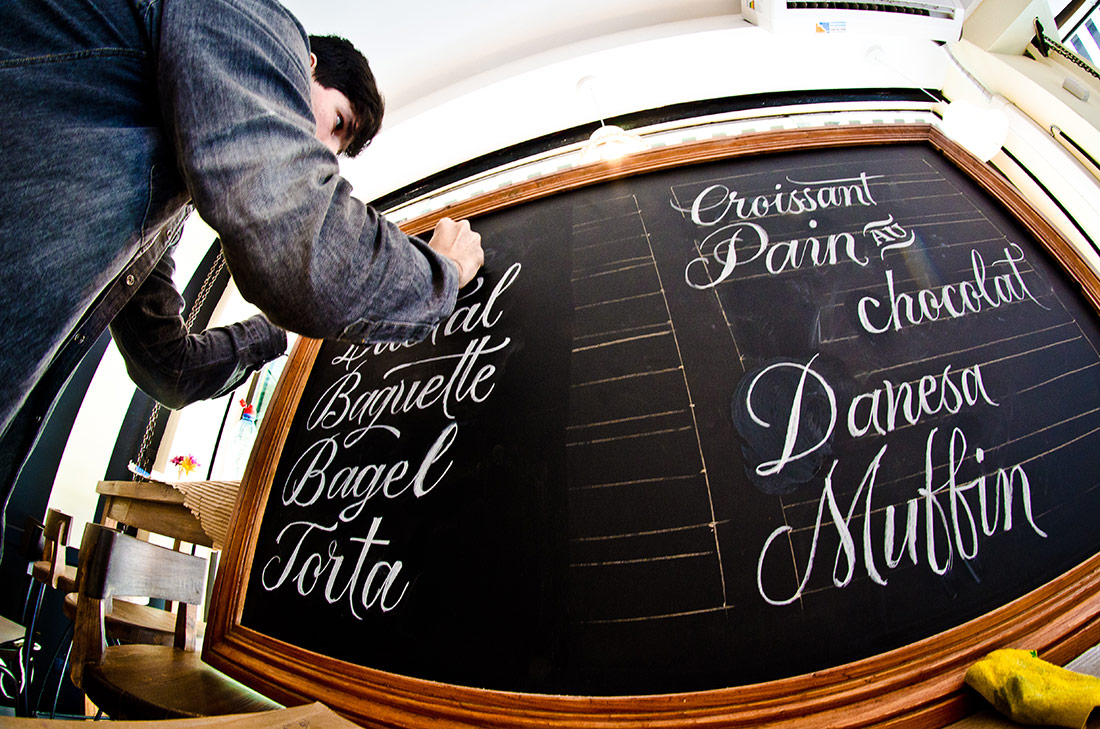 Baguette
Bagel
Torta
Croissant
Pain AU
chocolat
Danesa
Muffin